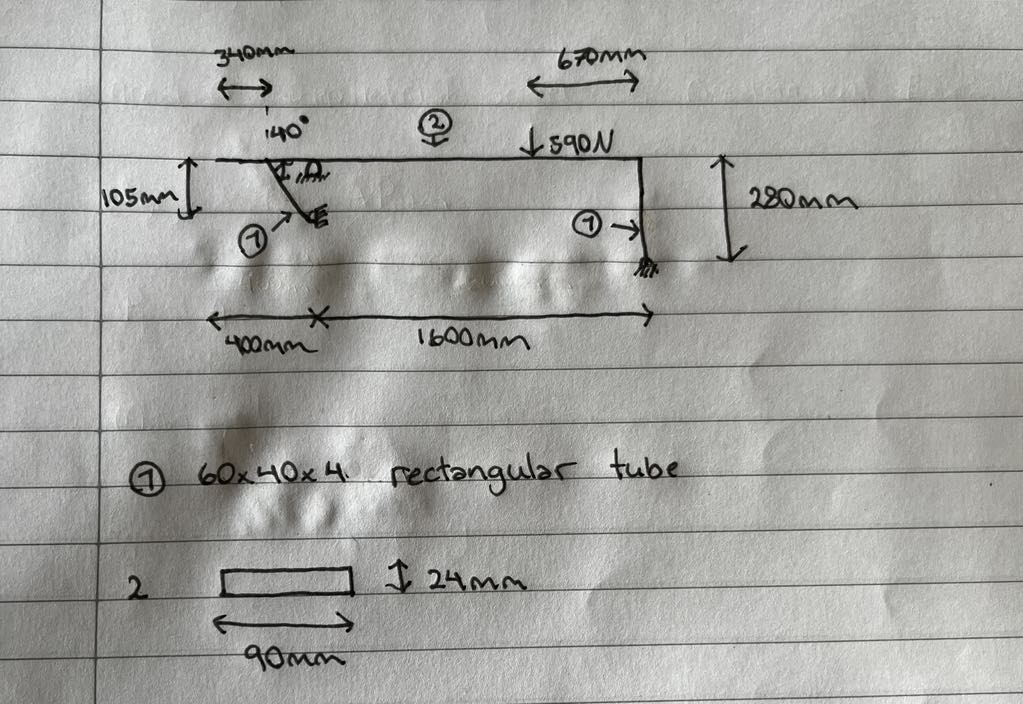 340mm
670mm
140°
②
590N
105mm
280mm
①
①
400mm
1600mm
① 60x40x4. rectangular tube
2
24mm
90mm